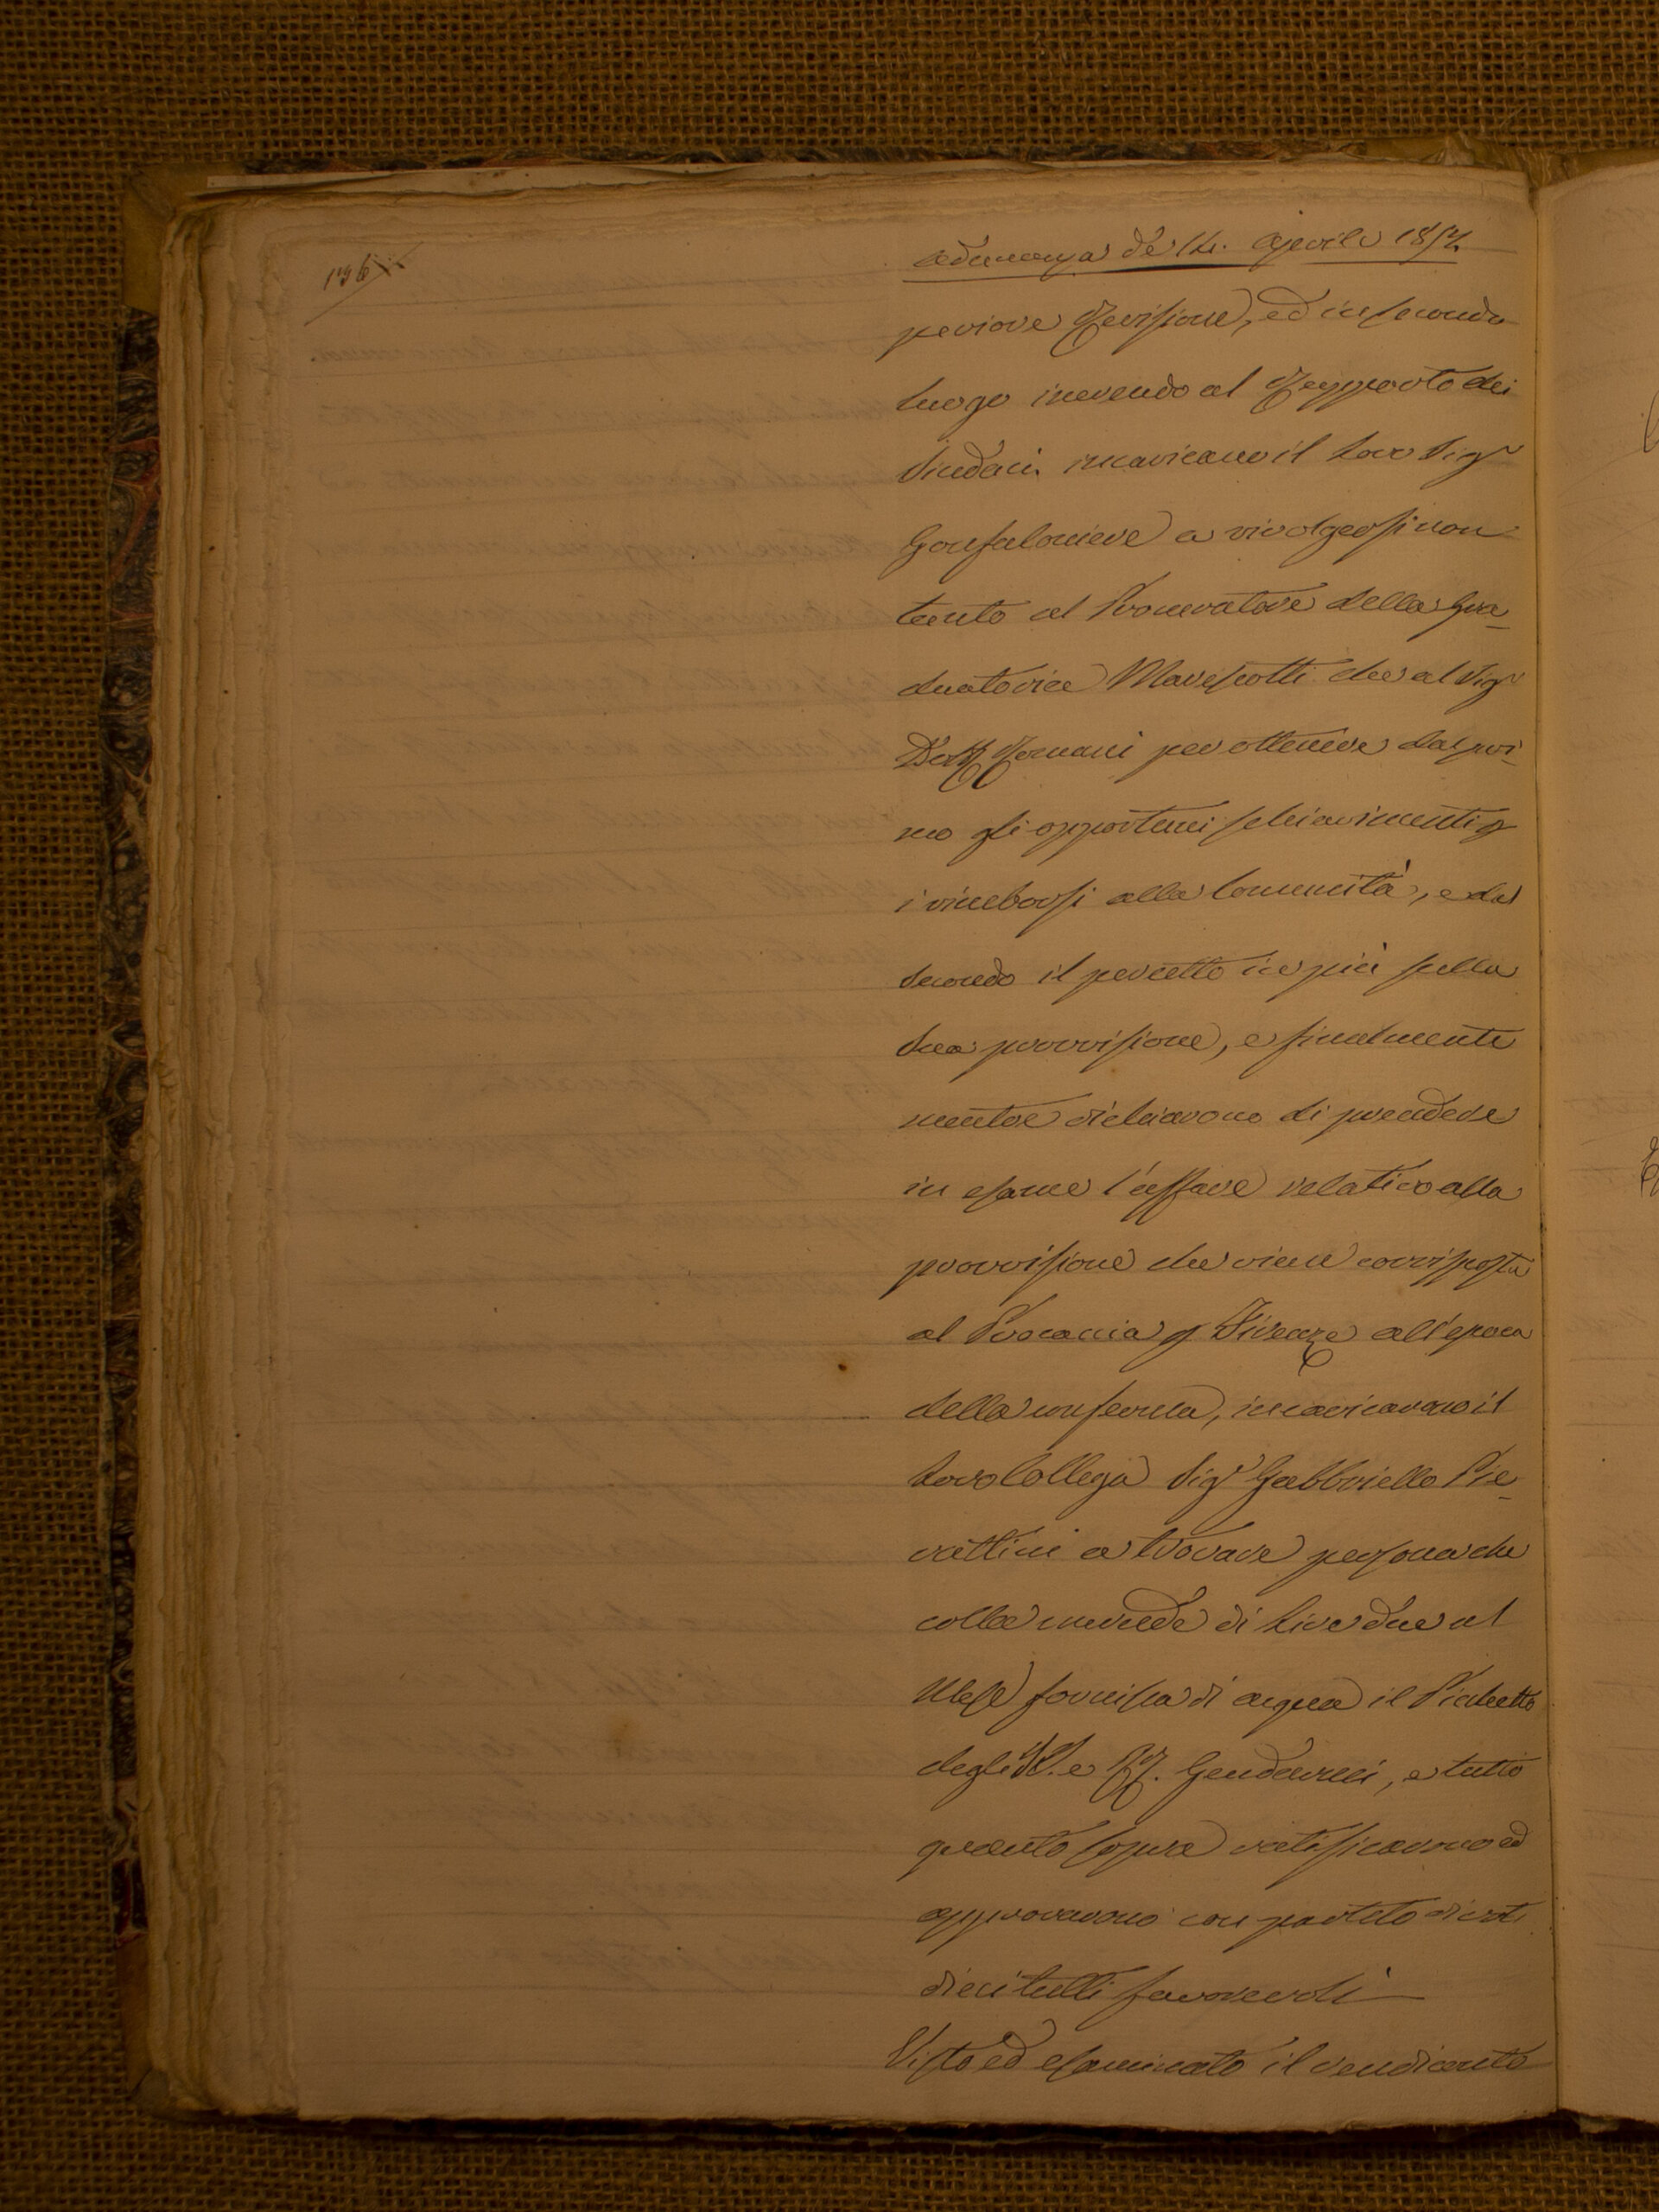 136
Adunanza de 14. Aprile 1857.
periore Revisione, ed in secondo
luogo inerendo al Rapporto dei
Sindaci incaricano il Loro Sigr
Gonfaloniere a rivolgersi non
tanto al Procuratore della Gra-
duatoria Marescotti che al Sigr
Dott Romani per ottenere dal pri-
mo gli opportuni schiarimenti p
i rimborsi alla Comunità, e dal
Secondo il percetto in più sulla
Sua provvisione, e finalmente
mentre dichiararono di prendere
in esame l'affare relativo alla
provvisione che viene corrisposta
al Procaccia p Firenze all'epoca
della conferma, incaricavano il
Loro Collega Sigr Gabbriello Pie-
rattini a trovare persona che
colla mercede di Lire due al
Mese fornisca di acqua il Picchetto
degli II. e RR. Gendarmi, e tutto
quanto sopra ratificarono ed
approvarono con partito di voti
dieci tutti favorevoli
Visto ed esaminato il rendiconto